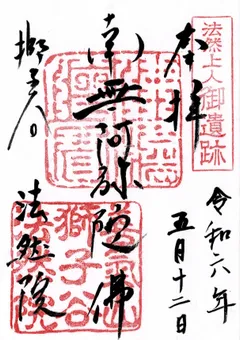 法然上人御遺跡
奉拝
令和六年
五月十二日
南無阿弥陀佛
獅子谷
法然院